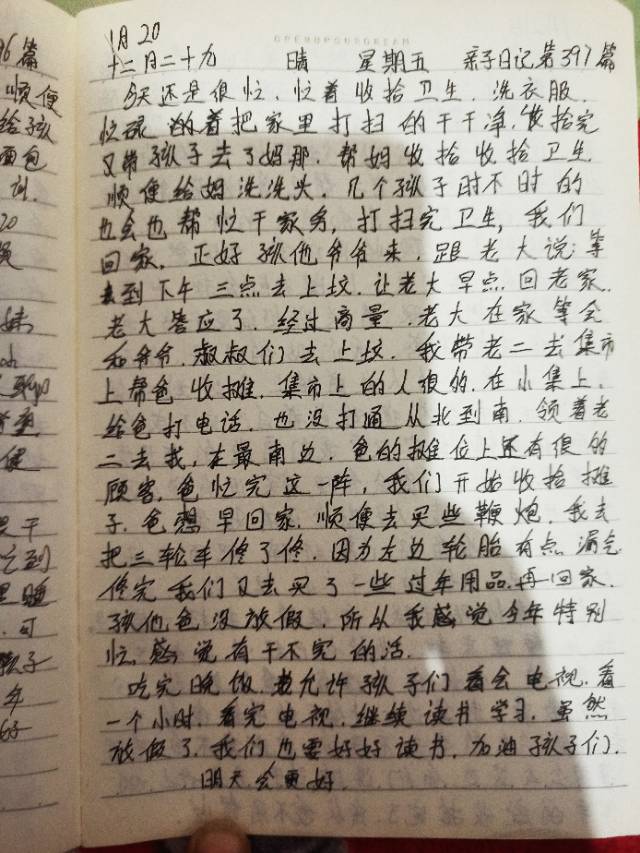 96篇
顺便
给孩
面包
20
DREAM
1月20
十二月二十九 晴 星期五 亲子日记第397篇
今天还是很忙、忙着收拾卫生、洗衣服、
忙碌的着把家里打扫的干干净,收拾完
又带孩子去了妈那、帮妈收拾收拾卫生
顺便给妈洗洗头、几个孩子时不时的
也会也帮忙干家务,打扫完卫生,我们
回家、正好孩他爷爷来,跟老大说:等
到下午三点去上坟、让老大早点回老家、
老大答应了、经过商量、老大在家等会
和爷爷、叔叔们去上坟、我带老二去集市
上帮爸收摊、集市上的人很的、在小集上、
给爸打电话、也没打通从北到南、领着老
二去找,在最南边、爸的摊位上还有很的
顾客,爸忙完这一阵,我们开始收拾摊
子、爸想早回家、顺便去买些鞭炮、我去
把三轮车修了修、因为左边轮胎有点漏气
修完我们又去买了一些过年用品、再回家、
孩他爸没放假、所以我感觉今年特别
忙、感觉有干不完的活、
吃完晚饭、允许孩子们看会电视、看
一个小时、看完电视、继续读书学习、虽然
放假了、我们也要好好读书、加油孩子们、
明天会更好、